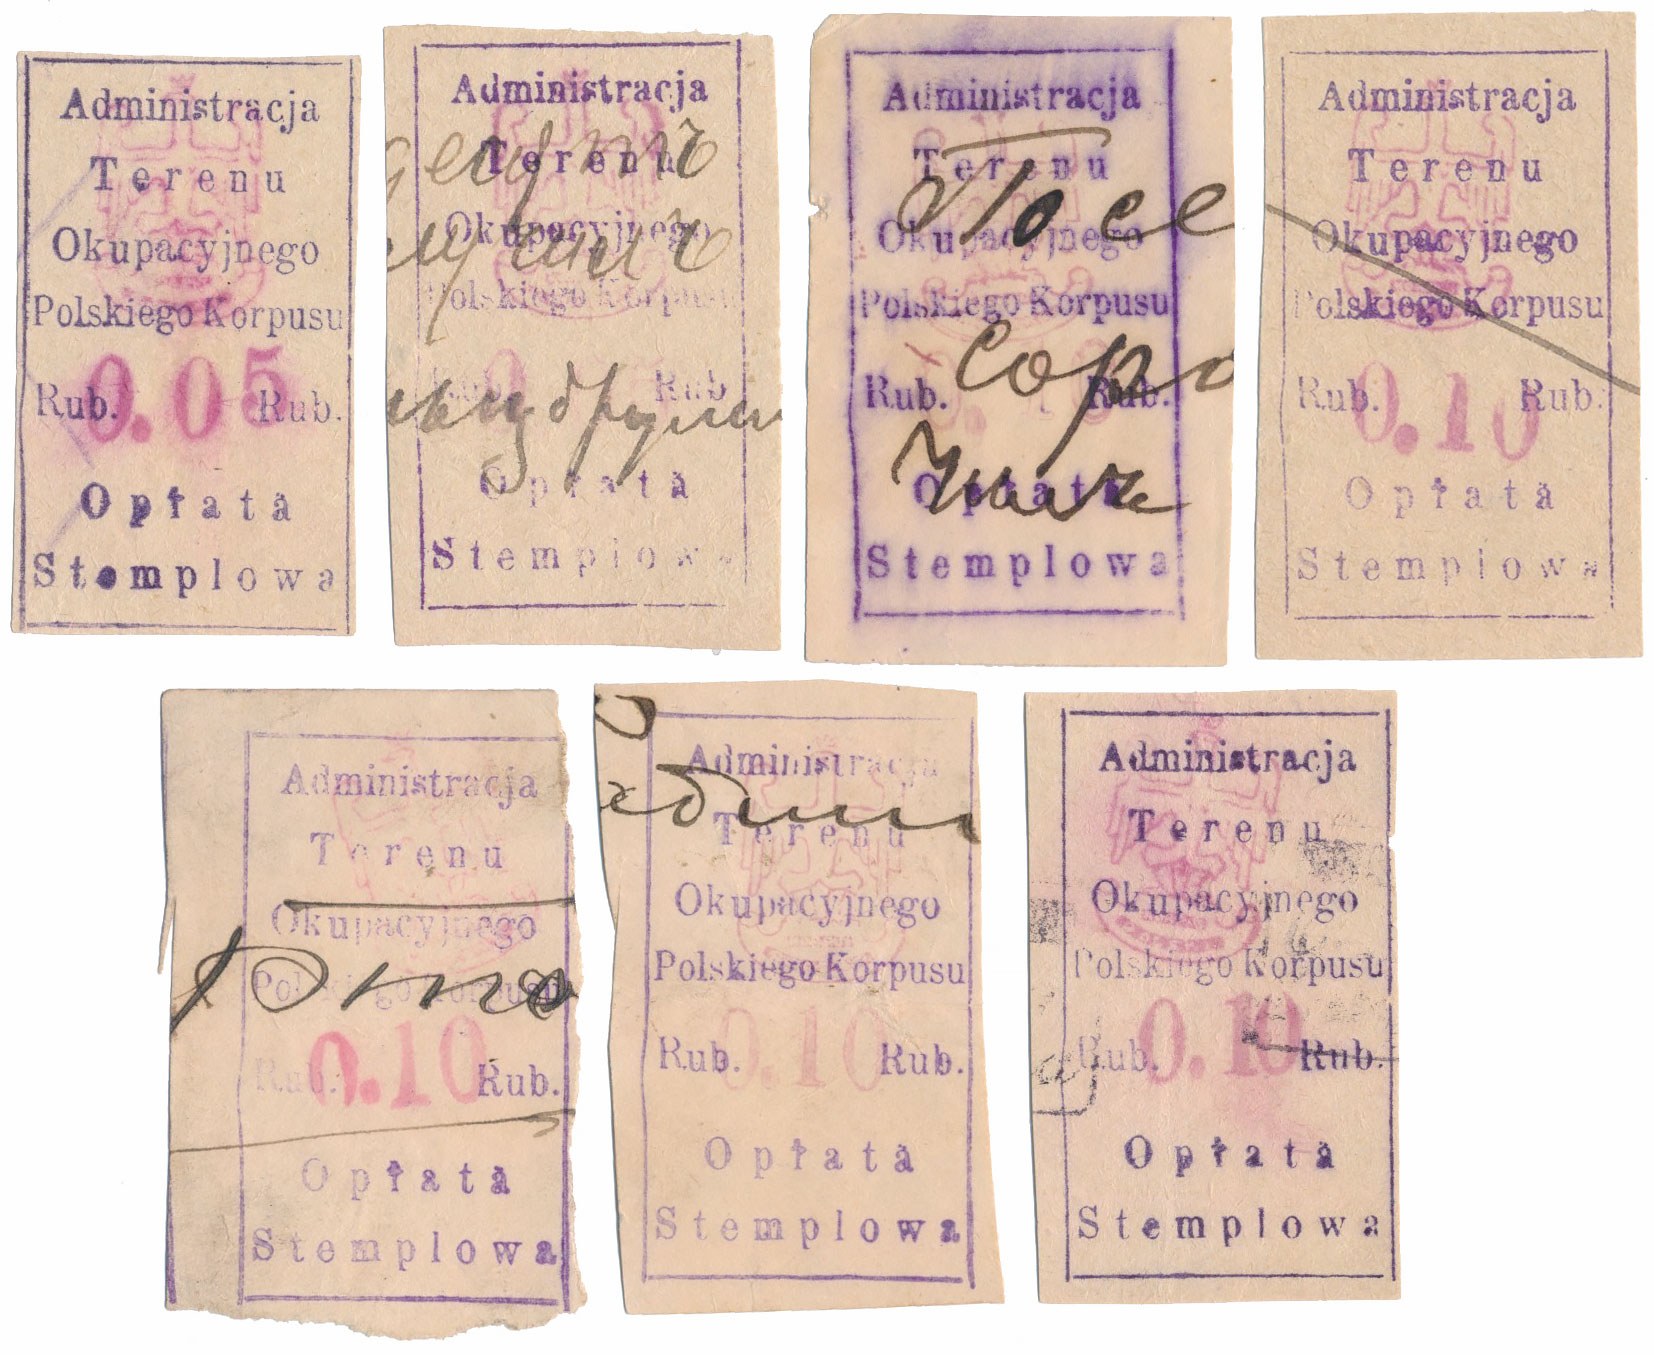 Administracja
Terenu
Okupacyjnego
Polskiego Korpusu
Rub. 0.05 Rub.
Opłata
Stemplowa
Administracja
Terenu
Okupacyjnego
Polskiego Korpusu
Rub. 0. Rub.
Opłata
Stemplowa
Administracja
Terenu
Okupacyjnego
Polskiego Korpusu
Rub. Rub.
Opłata
Stemplowa
Administracja
Terenu
Okupacyjnego
Polskiego Korpusu
Rub. 0.10 Rub.
Opłata
Stemplowa
Administracja
Terenu
Okupacyjnego
Polskiego Korpusu
Rub. 0.10 Rub.
Opłata
Stemplowa
Administracja
Terenu
Okupacyjnego
Polskiego Korpusu
Rub. 0.10 Rub.
Opłata
Stemplowa
Administracja
Terenu
Okupacyjnego
Polskiego Korpusu
Rub. 0.10 Rub.
Opłata
Stemplowa